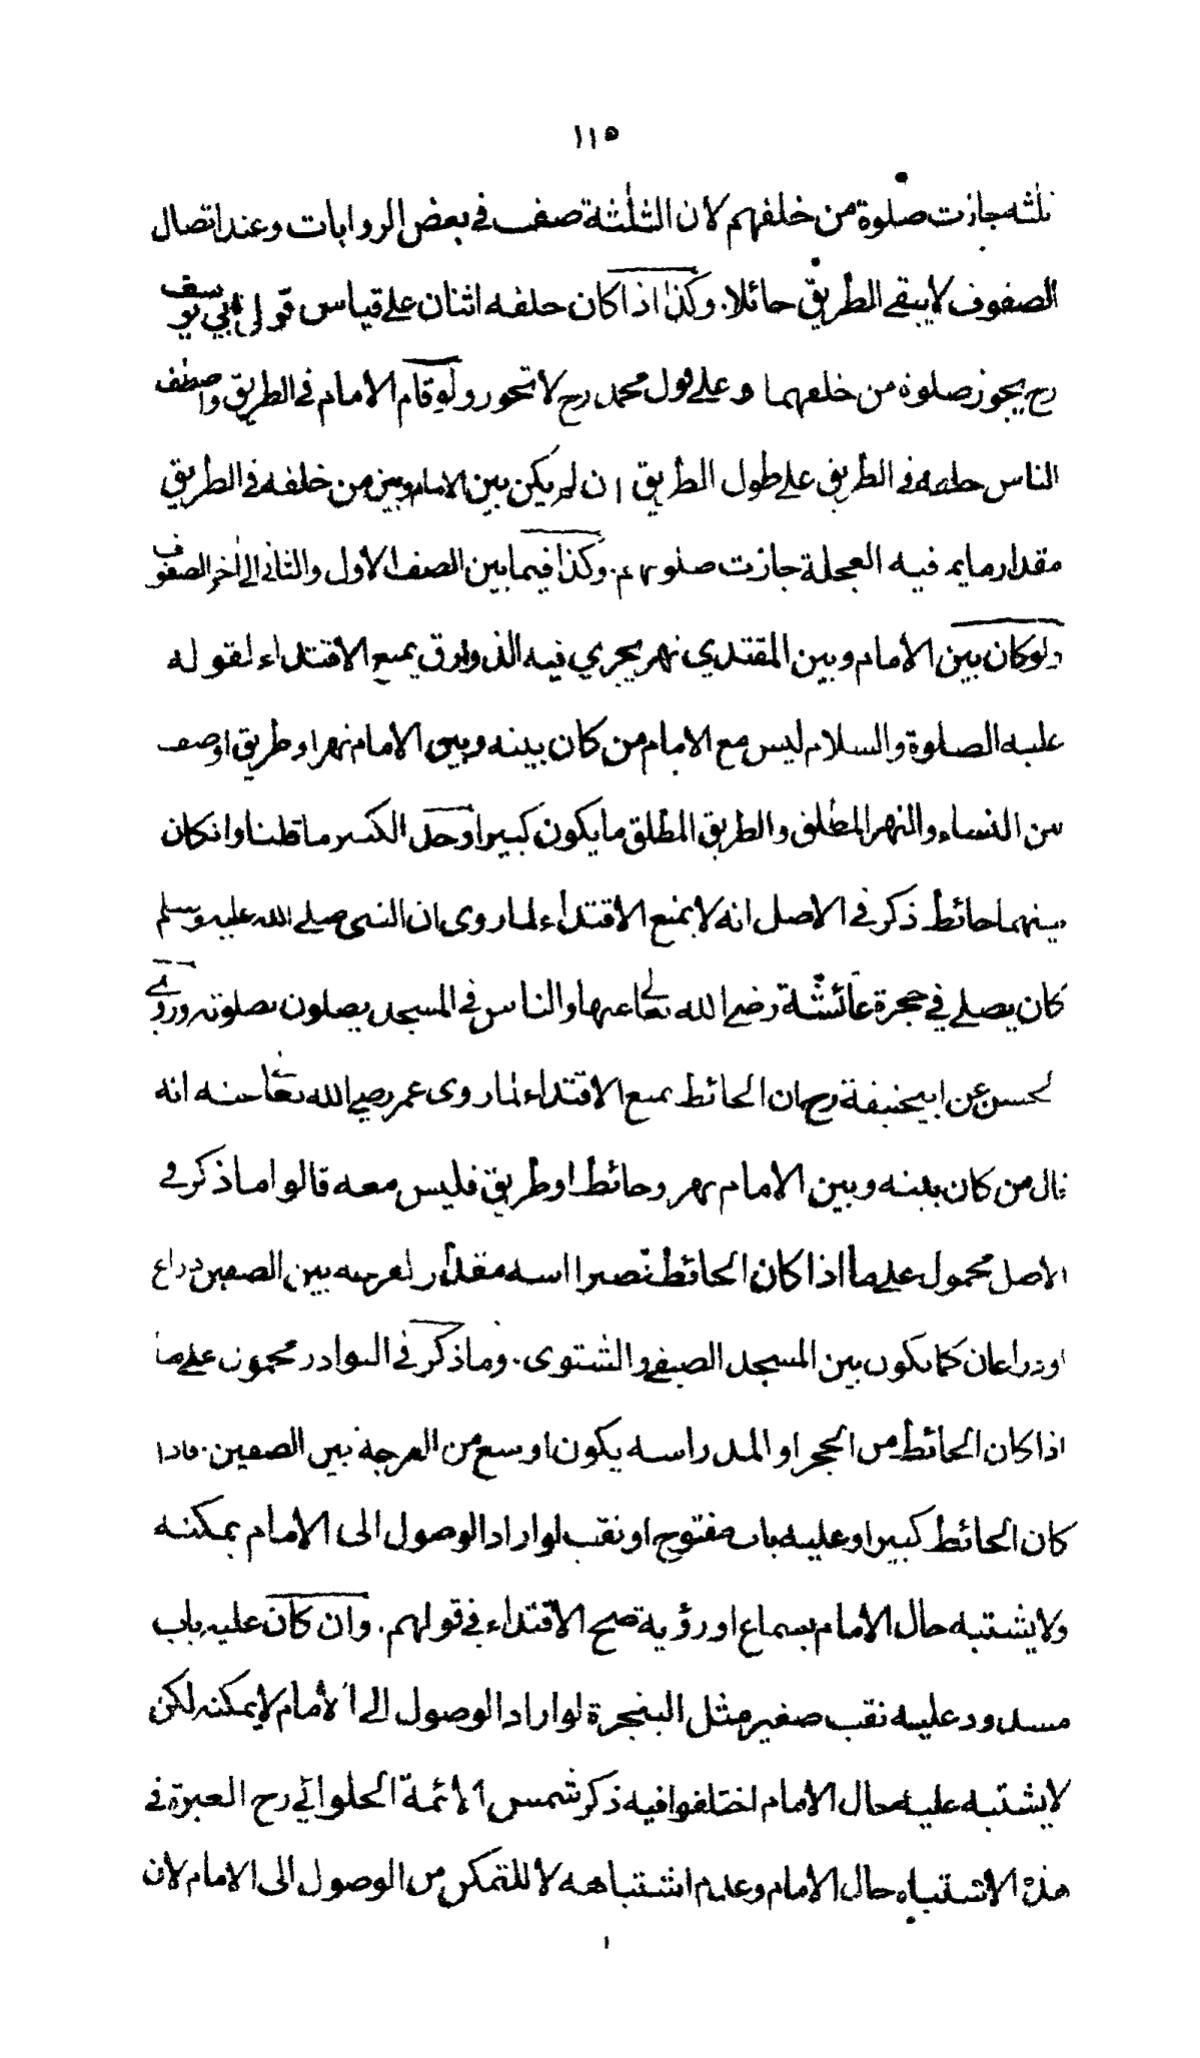 ١١٥
ثلثه جازت صلوة من خلفهم لان الثلثة صف في بعض الروايات وعند اتصال
الصفوف لا يبقى الطريق حائلا. وكذا اذا كان خلفه اثنان على قياس قول ابي يوسف
رح يجوز صلوة من خلفهما وعلى قول محمد رح لا تجوز ولو قام الامام في الطريق واصطف
الناس خلفه في الطريق على طول الطريق ان لم يكن بين الامام وبين من خلفه في الطريق
مقدار ما يمر فيه العجلة جازت صلوتهم. وكذا فيما بين الصف الاول والثاني الى اخر الصفوف
ولو كان بين الامام وبين المقتدي نهر يجري فيه الزوارق يمنع الاقتداء لقوله
عليه الصلوة والسلام ليس مع الامام من كان بينه وبين الامام نهر او طريق او صف
من النساء والنهر المطلق والطريق المطلق ما يكون كبيرا وحد الكبير ما قلنا وانكان
بينهما حائط ذكر في الاصل انه لا يمنع الاقتداء لما روى ان النبي صلى الله عليه وسلم
كان يصلي في حجرة عائشة رضي الله تعالى عنها والناس في المسجد يصلون بصلوته وروى
لحسن عن ابيحنيفة رح ان الحائط يمنع الاقتداء لما روى عمر رضي الله تعالى عنه انه
قال من كان بينه وبين الامام نهر وحائط او طريق فليس معه قالوا ما ذكر في
الاصل محمول على ما اذا كان الحائط قصيرا اسه مقدار لفرجه بين الصفين ذراع
او ذراعان كما يكون بين المسجد الصيفي والشتوى. وما ذكر في النوادر محمول على ما
اذا كان الحائط من الحجر او المدر راسه يكون اوسع من الفرجة بين الصفين. فاذا
كان الحائط كبيرا وعليه باب مفتوح او نقب لو اراد الوصول الى الامام يمكنه
ولا يشتبه حال الامام بسماع او رؤية صح الاقتداء في قولهم. وان كان عليه باب
مسدود عليه نقب صغير مثل البنجرة لو اراد الوصول الى الامام لا يمكنه لكن
لا يشتبه عليه حال الامام اختلفوا فيه ذكر شمس الائمة الحلوائي رح العبرة في
هذه الاشتباه حال الامام وعدم اشتباهه لا للتمكن من الوصول الى الامام لان
١